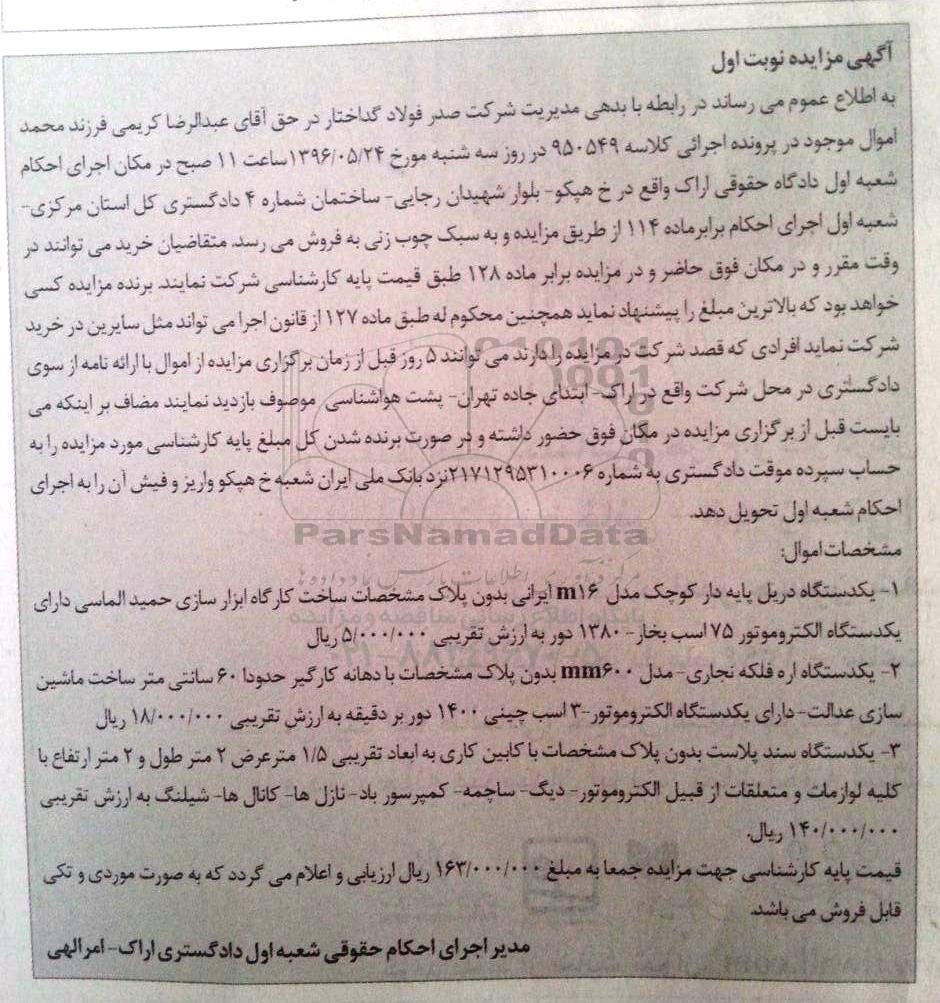 آگهی مزایده نوبت اول
به اطلاع عموم می رساند در رابطه با بدهی مدیریت شرکت صدر فولاد گداختار در حق آقای عبدالرضا کریمی فرزند محمد
اموال موجود در پرونده اجرائی کلاسه ۹۵۰۵۴۹ در روز سه شنبه مورخ ۱۳۹۶/۰۵/۲۴ساعت ۱۱ صبح در مکان اجرای احکام
شعبه اول دادگاه حقوقی اراک واقع در خ هپکو- بلوار شهیدان رجایی- ساختمان شماره ۴ دادگستری کل استان مرکزی-
شعبه اول اجرای احکام برابرماده ۱۱۴ از طریق مزایده و به سبک چوب زنی به فروش می رسد. متقاضیان خرید می توانند در
وقت مقرر و در مکان فوق حاضر و در مزایده برابر ماده ۱۲۸ طبق قیمت پایه کارشناسی شرکت نمایند. برنده مزایده کسی
خواهد بود که بالاترین مبلغ را پیشنهاد نماید همچنین محکوم له طبق ماده ۱۲۷ از قانون اجرا می تواند مثل سایرین در خرید
شرکت نماید افرادی که قصد شرکت در مزایده را دارند می توانند ۵ روز قبل از زمان برگزاری مزایده از اموال با ارائه نامه از سوی
دادگستری در محل شرکت واقع در اراک- ابتدای جاده تهران- پشت هواشناسی موصوف بازدید نمایند مضاف بر اینکه می
بایست قبل از برگزاری مزایده در مکان فوق حضور داشته و در صورت برنده شدن کل مبلغ پایه کارشناسی مورد مزایده را به
حساب سپرده موقت دادگستری به شماره ۲۱۷۱۲۹۵۳۱۰۰۰۶نزد بانک ملی ایران شعبه خ هپکو واریز و فیش آن را به اجرای
احکام شعبه اول تحویل دهد.
ParsNamadData
مشخصات اموال:
۱- یکدستگاه دریل پایه دار کوچک مدل m۱۶ ایرانی بدون پلاک مشخصات ساخت کارگاه ابزار سازی حمید الماسی دارای
یکدستگاه الکتروموتور ۷۵ اسب بخار- ۱۳۸۰ دور به ارزش تقریبی ۵/۰۰۰/۰۰۰ ریال
۲- یکدستگاه اره فلکه نجاری- مدل mm۶۰۰ بدون پلاک مشخصات با دهانه کارگیر حدودا ۶۰ سانتی متر ساخت ماشین
سازی عدالت- دارای یکدستگاه الکتروموتور-۳ اسب چینی ۱۴۰۰ دور بر دقیقه به ارزش تقریبی ۱۸/۰۰۰/۰۰۰ ریال
۳- یکدستگاه سند پلاست بدون پلاک مشخصات با کابین کاری به ابعاد تقریبی ۱/۵ مترعرض ۲ متر طول و ۲ متر ارتفاع با
کلیه لوازمات و متعلقات از قبیل الکتروموتور- دیگ- ساچمه- کمپرسور باد- نازل ها- کانال ها- شیلنگ به ارزش تقریبی
۱۴۰/۰۰۰/۰۰۰ ریال.
قیمت پایه کارشناسی جهت مزایده جمعا به مبلغ ۱۶۳/۰۰۰/۰۰۰ ریال ارزیابی و اعلام می گردد که به صورت موردی و تکی
قابل فروش می باشد.
مدیر اجرای احکام حقوقی شعبه اول دادگستری اراک- امرالهی